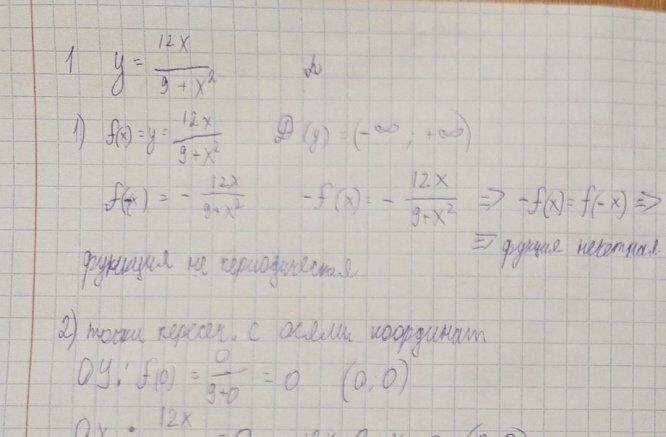 1 y = 12x / (9 + x²) D
1) f(x) = y = 12x / (9 + x²) D(y) = (-∞; +∞)
f(-x) = - 12x / (9 + x²) -f(x) = - 12x / (9 + x²) => -f(x) = f(-x) =>
=> фукция нечетная
функция не периодическая
2) точки пересеч. с осями координат
OY: f(0) = 0 / (9+0) = 0 (0; 0)
OX: 12x